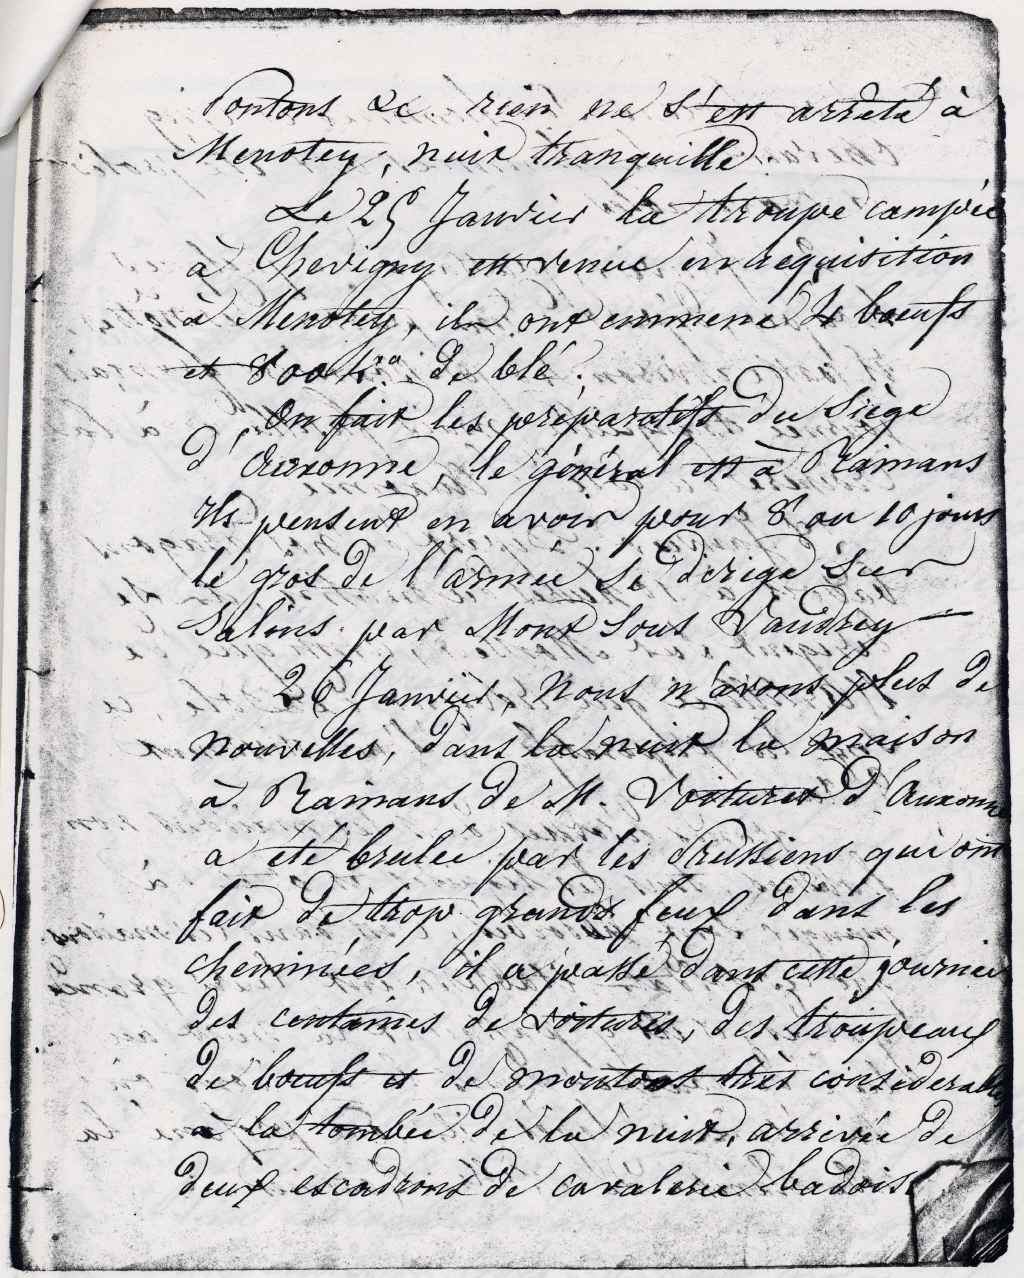 Pontons &c rien ne s'est arrêté à
Menotey, nuit tranquille
Le 25 Janvier la troupe campée
à Chevigny est venue en réquisition
à Menotey, ils ont emmené 4 bœufs
et 800 k de blé.
On fait les préparatifs du Siège
d'Auxonne, le général est à Rainans
Ils pensent en avoir pour 8 ou 10 jours
le gros de l'armée se dirige sur
Salins par Mont Sous Vaudrey
26 Janvier, nous n'avons plus de
nouvelles, dans la nuit la maison
à Rainans de M. Voituret d'Auxonne
a été brulée par les Prussiens qui ont
fait de trop grands feux dans les
cheminées, il a passé dans cette journée
des centaines de voitures, des troupeaux
de bœufs et de moutons très considerables
à la tombée de la nuit, arrivée de
deux escadrons de cavalerie badois